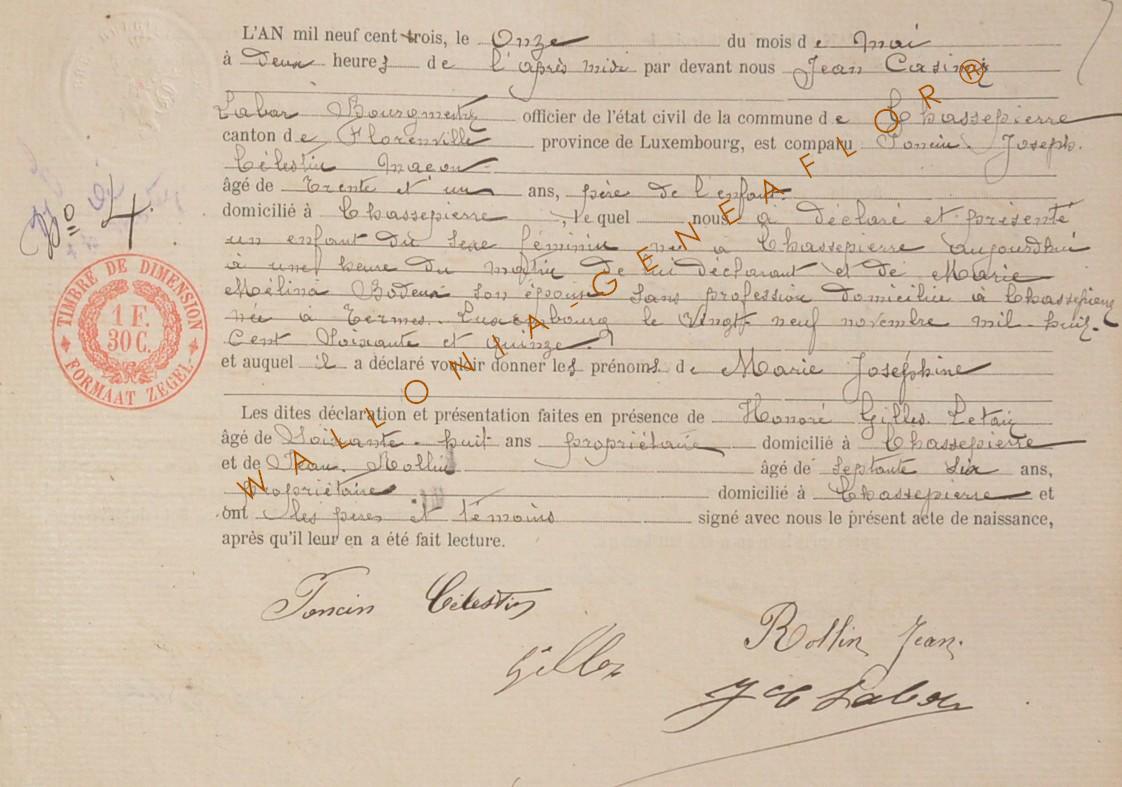 L'AN mil neuf cent trois, le Onze du mois de Mai
à Deux heures de l'après midi par devant nous Jean Casimir
Labar Bourgmestre officier de l'état civil de la commune de Chassepierre
canton de Florenville province de Luxembourg, est comparu Poncin Joseph
Célestin Maçon
âgé de Trente et un ans, père de l'enfant
domicilié à Chassepierre, lequel nous a déclaré et présenté
un enfant du sexe féminin né à Chassepierre aujourdhui
à une heure du matin de lui déclarant et de Marie
Mélina Bodeux son épouse sans profession domiciliée à Chassepierre
née à Termes Luxembourg le Vingt neuf novembre mil huit
Cent Soixante et quinze
et auquel il a déclaré vouloir donner les prénoms de Marie Joséphine
Les dites déclaration et présentation faites en présence de Honoré Gilles
âgé de Soixante huit ans propriétaire domicilié à Chassepierre
et de Jean Rollin âgé de Septante six ans,
propriétaire domicilié à Chassepierre et
ont les pères et témoins signé avec nous le présent acte de naissance,
après qu'il leur en a été fait lecture.
Nº 4
TIMBRE DE DIMENSION
1 F.
30 C.
FORMAAT ZEGEL
Poncin Célestin
Rollin Jean
J C Labar
WALLONIA GENEAFLOR ®